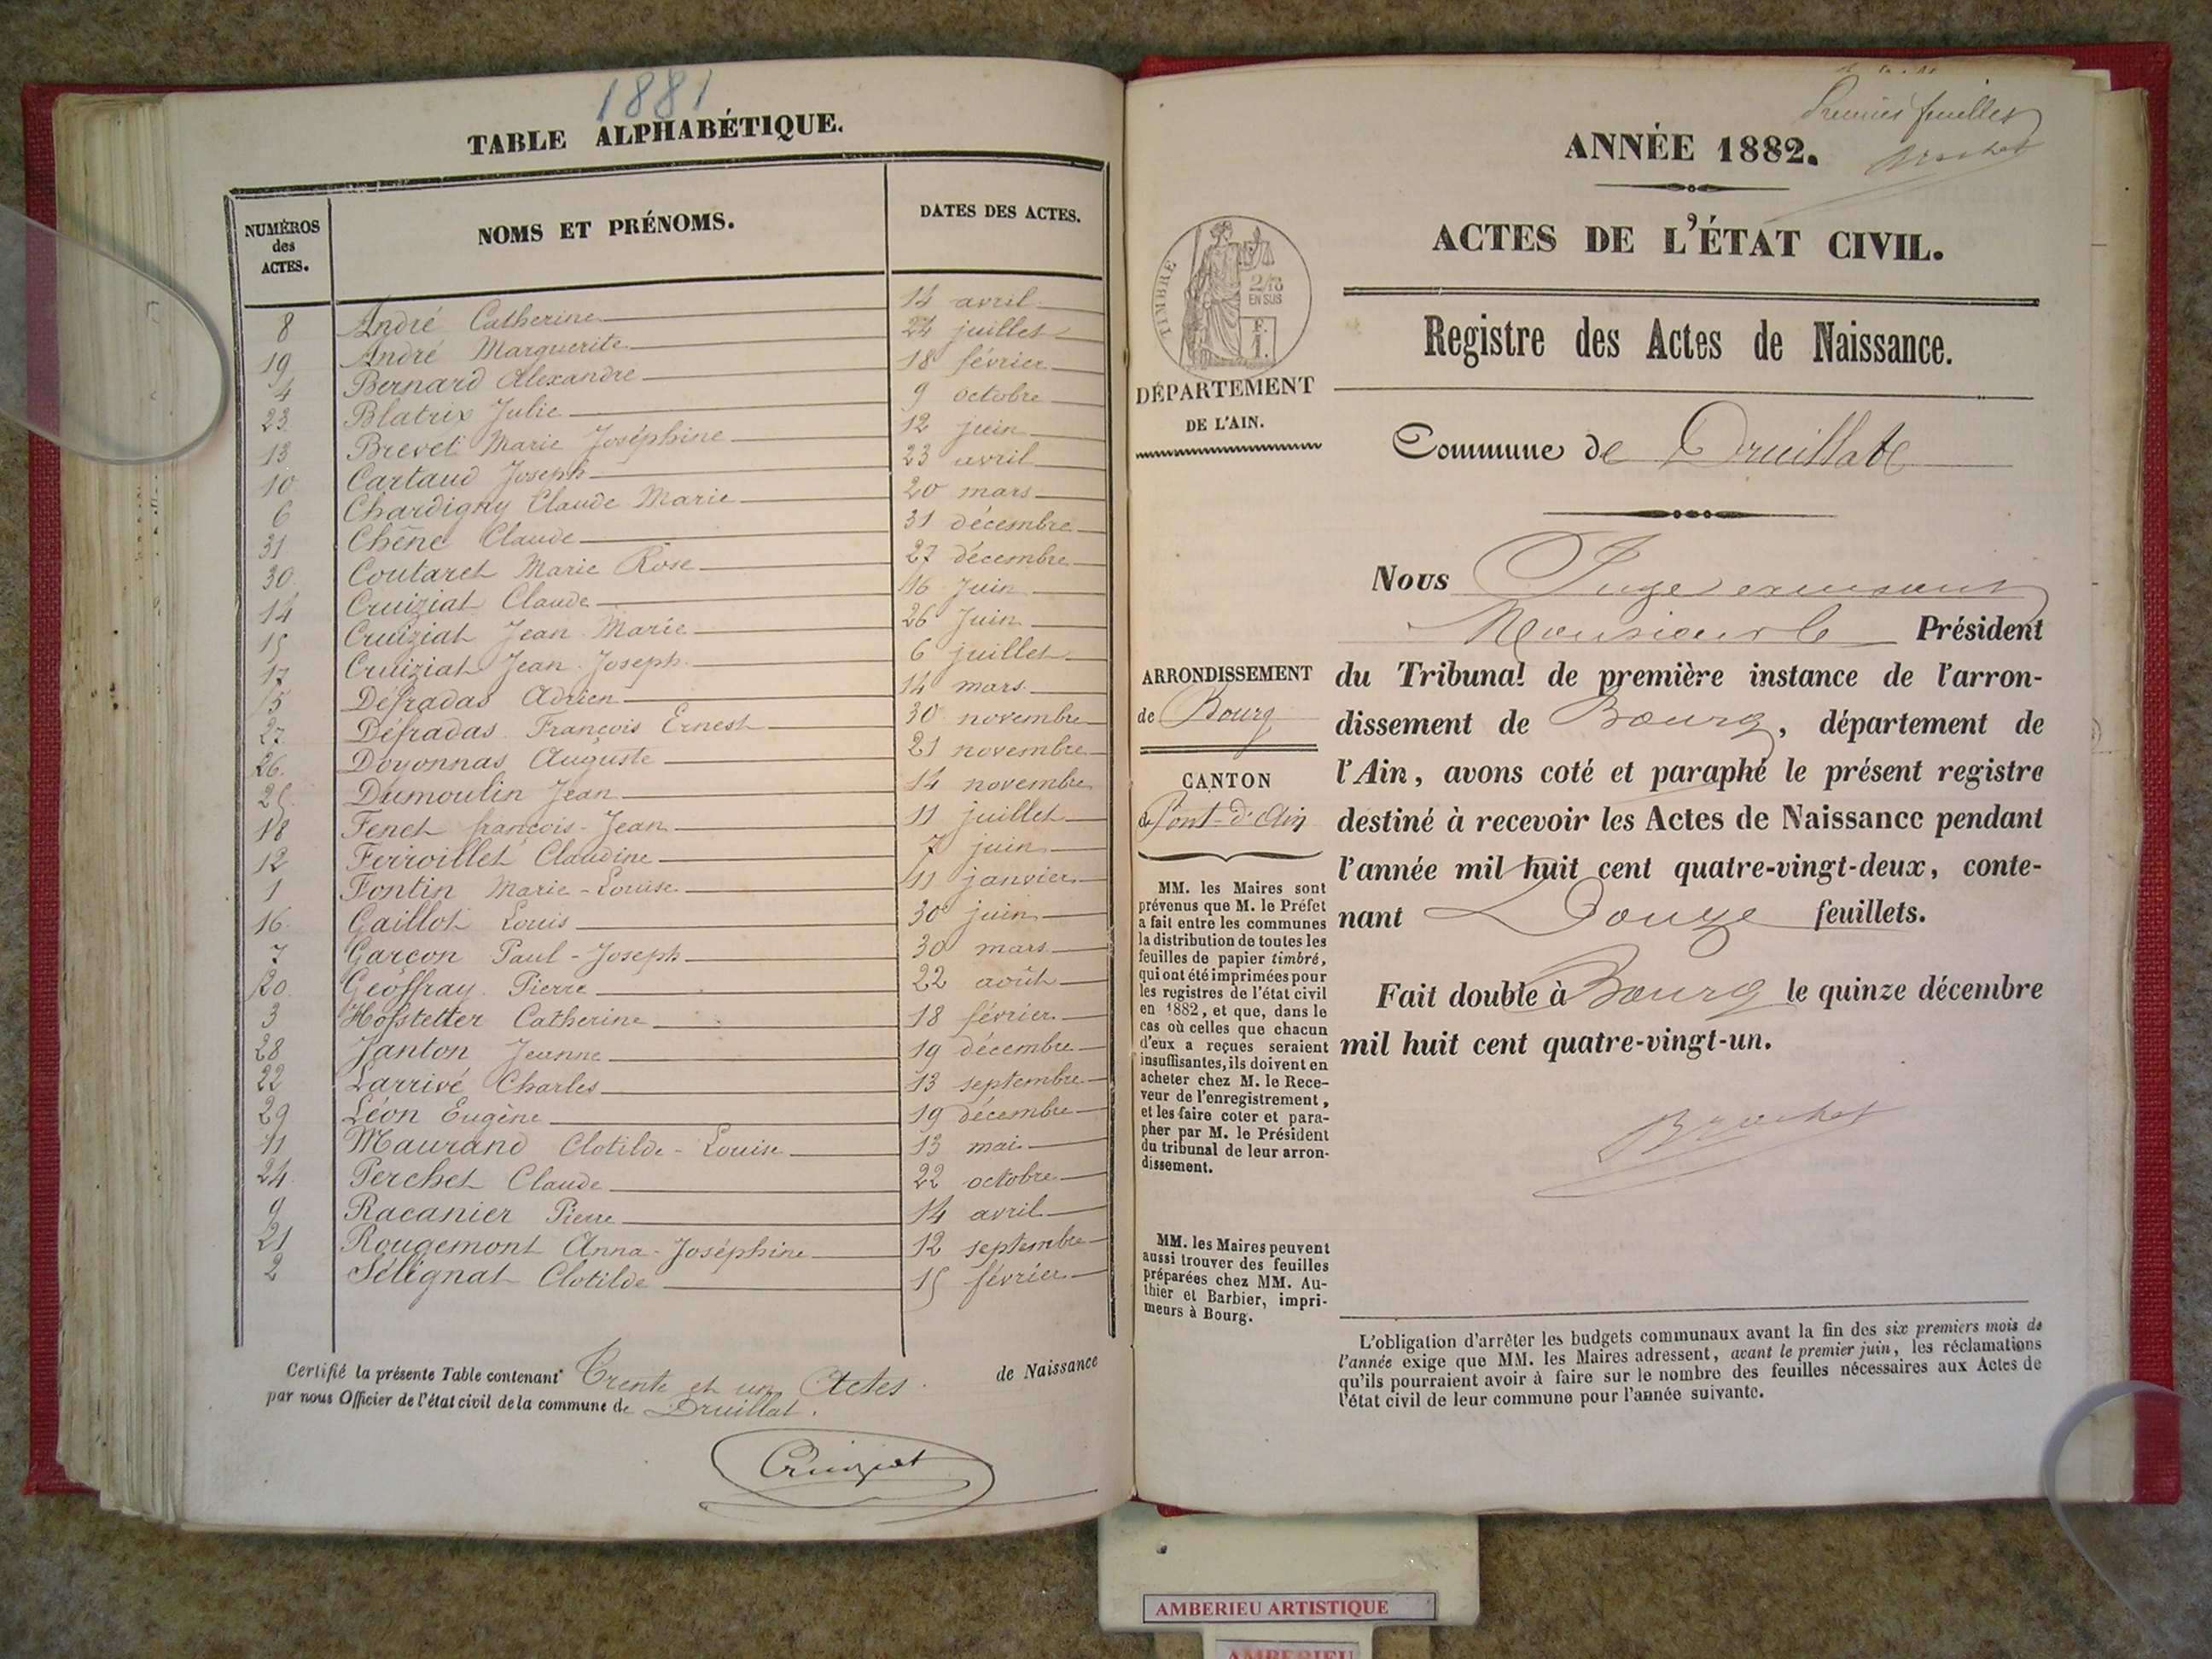 1881
TABLE ALPHABÉTIQUE.
NUMÉROS des ACTES. NOMS ET PRÉNOMS. DATES DES ACTES.
8 André Catherine 14 avril
19 André Marguerite 24 juillet
4 Bernard Alexandre 18 février
23. Blatrix Julie 9 octobre
13 Brevet Marie Joséphine 12 juin
10 Cartaud Joseph 23 avril
6 Chardigny Claude Marie 20 mars
31 Chêne Claude 31 décembre
30. Coutaret Marie Rose 27 décembre
14 Cruiziat Claude 16 Juin
15 Cruiziat Jean Marie 26 Juin
17 Cruiziat Jean-Joseph 6 juillet
5 Défradas Adrien 14 mars
27. Défradas François Ernest 30 novembre
26. Doyonnas Auguste 21 novembre
25 Dumoulin Jean 14 novembre
18 Fenet françois-Jean 11 juillet
12 Ferroillet Claudine 7 juin
1 Fontin Marie-Louise 11 janvier
16. Gaillot Louis 30 juin
7 Garçon Paul-Joseph 30 mars
20 Geoffray Pierre 22 août
3 Hofstetter Catherine 18 février
28 Janton Jeanne 19 décembre
22 Larrivé Charles 13 septembre
29 Léon Eugène 19 décembre
11 Maurand Clotilde-Louise 13 mai
24. Perchet Claude 22 octobre
9 Racanier Pierre 14 avril
21 Rougemont Anna-Joséphine 12 septembre
2 Sélignat Clotilde 15 février
Certifié la présente Table contenant Trente et un Actes de Naissance
par nous Officier de l'état civil de la commune de Druillat.
Cruiziat
Premier feuillet
Brochet
ANNÉE 1882.
ACTES DE L'ÉTAT CIVIL.
TIMBRE
2/10
EN SUS
F.
1.
Registre des Actes de Naissance.
DÉPARTEMENT
DE L'AIN.
Commune de Druillat
Nous Juge
Monsieur le Président
du Tribunal de première instance de l'arron-
dissement de Bourg, département de
l'Ain, avons coté et paraphé le présent registre
destiné à recevoir les Actes de Naissance pendant
l'année mil huit cent quatre-vingt-deux, conte-
nant Douze feuillets.
Fait double à Bourg le quinze décembre
mil huit cent quatre-vingt-un.
Brochet
ARRONDISSEMENT
de Bourg
CANTON
de Pont-d'Ain
MM. les Maires sont
prévenus que M. le Préfet
a fait entre les communes
la distribution de toutes les
feuilles de papier timbré,
qui ont été imprimées pour
les registres de l'état civil
en 1882, et que, dans le
cas où celles que chacun
d'eux a reçues seraient
insuffisantes, ils doivent en
acheter chez M. le Rece-
veur de l'enregistrement,
et les faire coter et para-
pher par M. le Président
du tribunal de leur arron-
dissement.
MM. les Maires peuvent
aussi trouver des feuilles
préparées chez MM. Au-
thier et Barbier, impri-
meurs à Bourg.
L'obligation d'arrêter les budgets communaux avant la fin des six premiers mois de
l'année exige que MM. les Maires adressent, avant le premier juin, les réclamations
qu'ils pourraient avoir à faire sur le nombre des feuilles nécessaires aux Actes de
l'état civil de leur commune pour l'année suivante.
AMBERIEU ARTISTIQUE
AMBERIEU